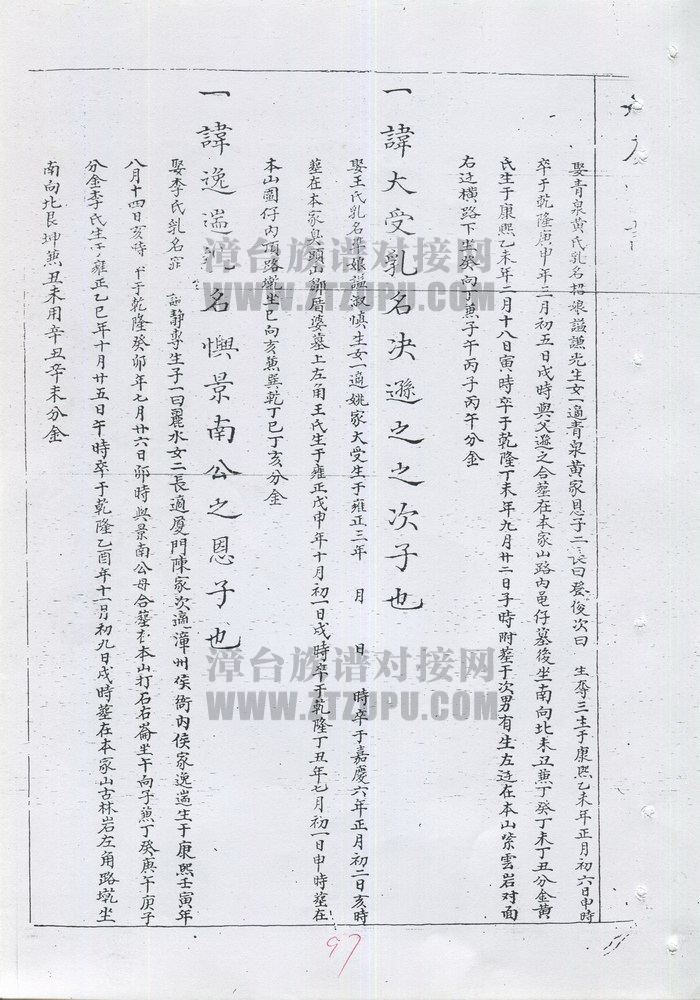 娶青泉黄氏乳名招娘謚謙光生女一適青泉黄家恩子二長曰登俊次曰 生尋三生于康熙乙未年正月初六日申時
卒于乾隆庚申年三月初五日戌時與父遜之合墓在本家山路内黽仔墓後坐南向北未丑兼丁癸丁未丁丑分金黄
氏生于康熙乙未年二月十八日寅時卒于乾隆丁未年九月廿二日子時附墓于次男有生左边在本山紫雲岩对面
右边横路下坐癸向丁兼子午丙子丙午分金
一諱大受乳名决遜之之次子也
娶王氏乳名 娘謚淑慎生女一適姚家大受生于雍正三年 月 日 時卒于嘉慶六年正月初二日亥時
墓在本家 頭山 厝婆墓上左角王氏生于雍正戊申年十月初一日戌時卒于乾隆丁丑年七月初一日申時墓在
本山園仔内頂路墘坐巳向亥兼巽乾丁巳丁亥分金
一諱逸湍乳名懙景南公之恩子也
娶李氏乳名 静專生子一曰麗水女二長適厦門陳家次適漳州侯衙内侯家逸湍生于康熙壬寅年
八月十四日亥時卒于乾隆癸卯年七月廿六日卯時與景南公母合墓在本山打石石崙坐午向子兼丁癸庚午庚子
分金李氏生于雍正乙巳年十月廿五日午時卒于乾隆乙酉年十一月初九日戌時墓在本家山古林岩左角路墘坐
南向北艮坤兼丑未用辛丑辛未分金
漳台族谱对接网
WWW.ZTZUPU.COM
漳台族谱对接网
WWW.ZTZUPU.COM
97